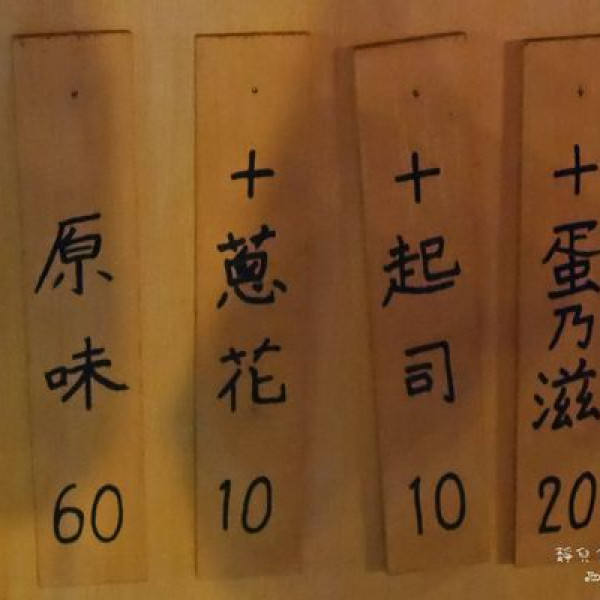 原味 60
+蔥花 10
+起司 10
+蛋乃滋 20
靜兒